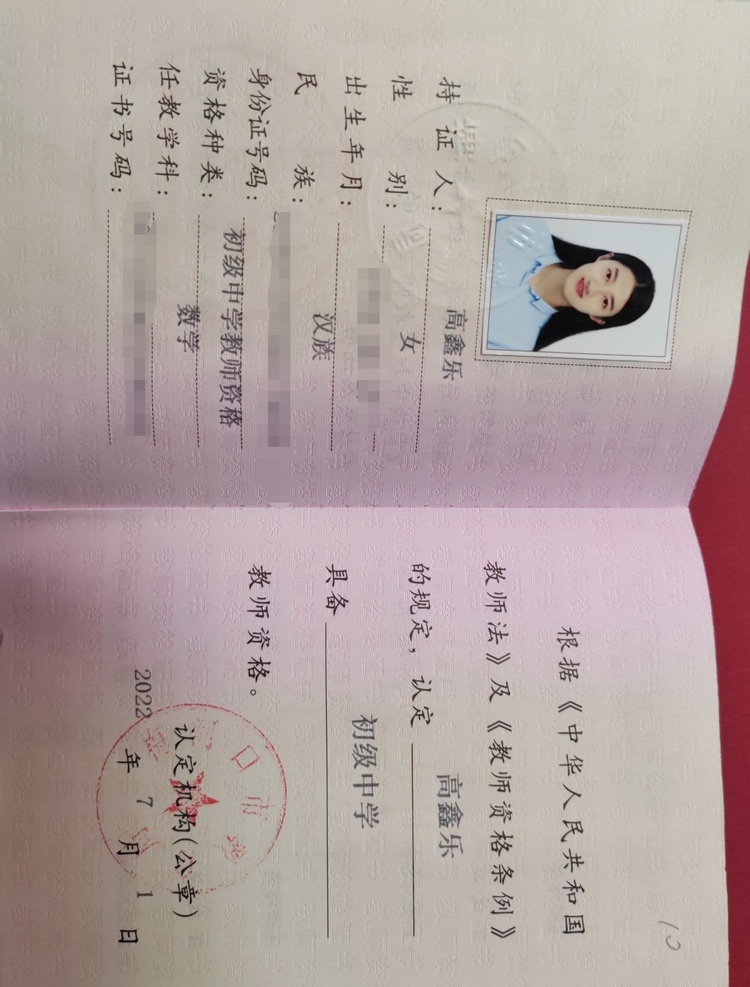 持证人：高鑫乐
性别：女
出生年月：
民族：汉族
身份证号码：
资格种类：初级中学教师资格
任教学科：数学
证书号码：
根据《中华人民共和国
教师法》及《教师资格条例》
的规定，认定 高鑫乐
具备 初级中学
教师资格。
认定机构（公章）
2022 年 7 月 1 日
10